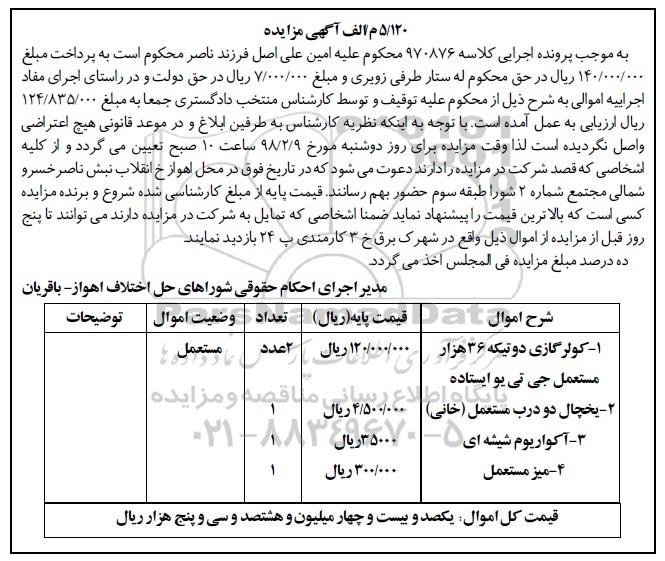 ۵/۱۲۰ م/الف آگهی مزایده
به موجب پرونده اجرایی کلاسه ۹۷۰۸۷۶ محکوم علیه امین علی اصل فرزند ناصر محکوم است به پرداخت مبلغ
۱۴۰/۰۰۰/۰۰۰ ریال در حق محکوم له ستار طرفی زویری و مبلغ ۷/۰۰۰/۰۰۰ ریال در حق دولت و در راستای اجرای مفاد
اجراییه اموالی به شرح ذیل از محکوم علیه توقیف و توسط کارشناس منتخب دادگستری جمعا به مبلغ ۱۲۴/۸۳۵/۰۰۰
ریال ارزیابی به عمل آمده است. با توجه به اینکه نظریه کارشناس به طرفین ابلاغ و در موعد قانونی هیچ اعتراضی
واصل نگردیده است لذا وقت مزایده برای روز دوشنبه مورخ ۹۸/۲/۹ ساعت ۱۰ صبح تعیین می گردد و از کلیه
اشخاصی که قصد شرکت در مزایده را دارند دعوت می شود که در تاریخ فوق در محل اهواز خ انقلاب نبش ناصرخسرو
شمالی مجتمع شماره ۲ شورا طبقه سوم حضور بهم رسانند. قیمت پایه از مبلغ کارشناسی شده شروع و برنده مزایده
کسی است که بالاترین قیمت را پیشنهاد نماید ضمنا اشخاصی که تمایل به شرکت در مزایده دارند می توانند تا پنج
روز قبل از مزایده از اموال ذیل واقع در شهرک برق خ ۳ کارمندی پ ۲۴ بازدید نمایند.
ده درصد مبلغ مزایده فی المجلس اخذ می گردد.
مدیر اجرای احکام حقوقی شوراهای حل اختلاف اهواز- باقریان
شرح اموال قیمت پایه(ریال) تعداد وضعیت اموال توضیحات
۱-کولرگازی دوتیکه ۳۶هزار ۱۲۰/۰۰۰/۰۰۰ریال ۲عدد مستعمل
مستعمل جی تی یو ایستاده
۲-یخچال دو درب مستعمل (خانی) ۴/۵۰۰/۰۰۰ ریال ۱
۳-آکواریوم شیشه ای ۳۵۰۰۰ریال ۱
۴-میز مستعمل ۳۰۰/۰۰۰ ریال ۱
قیمت کل اموال: یکصد و بیست و چهار میلیون و هشتصد و سی و پنج هزار ریال
ParsNamadData
مرکز فرآوری اطلاعات پارس نماد داده ها
پایگاه اطلاع رسانی مناقصه و مزایده
۰۲۱-۸۸۳۴۹۶۷۰-۵